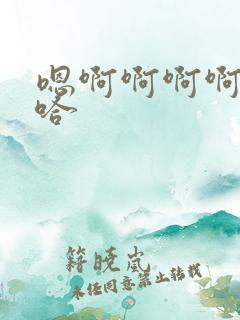 嗯啊啊啊啊
哈
籍晓岚
未经同意禁止转载